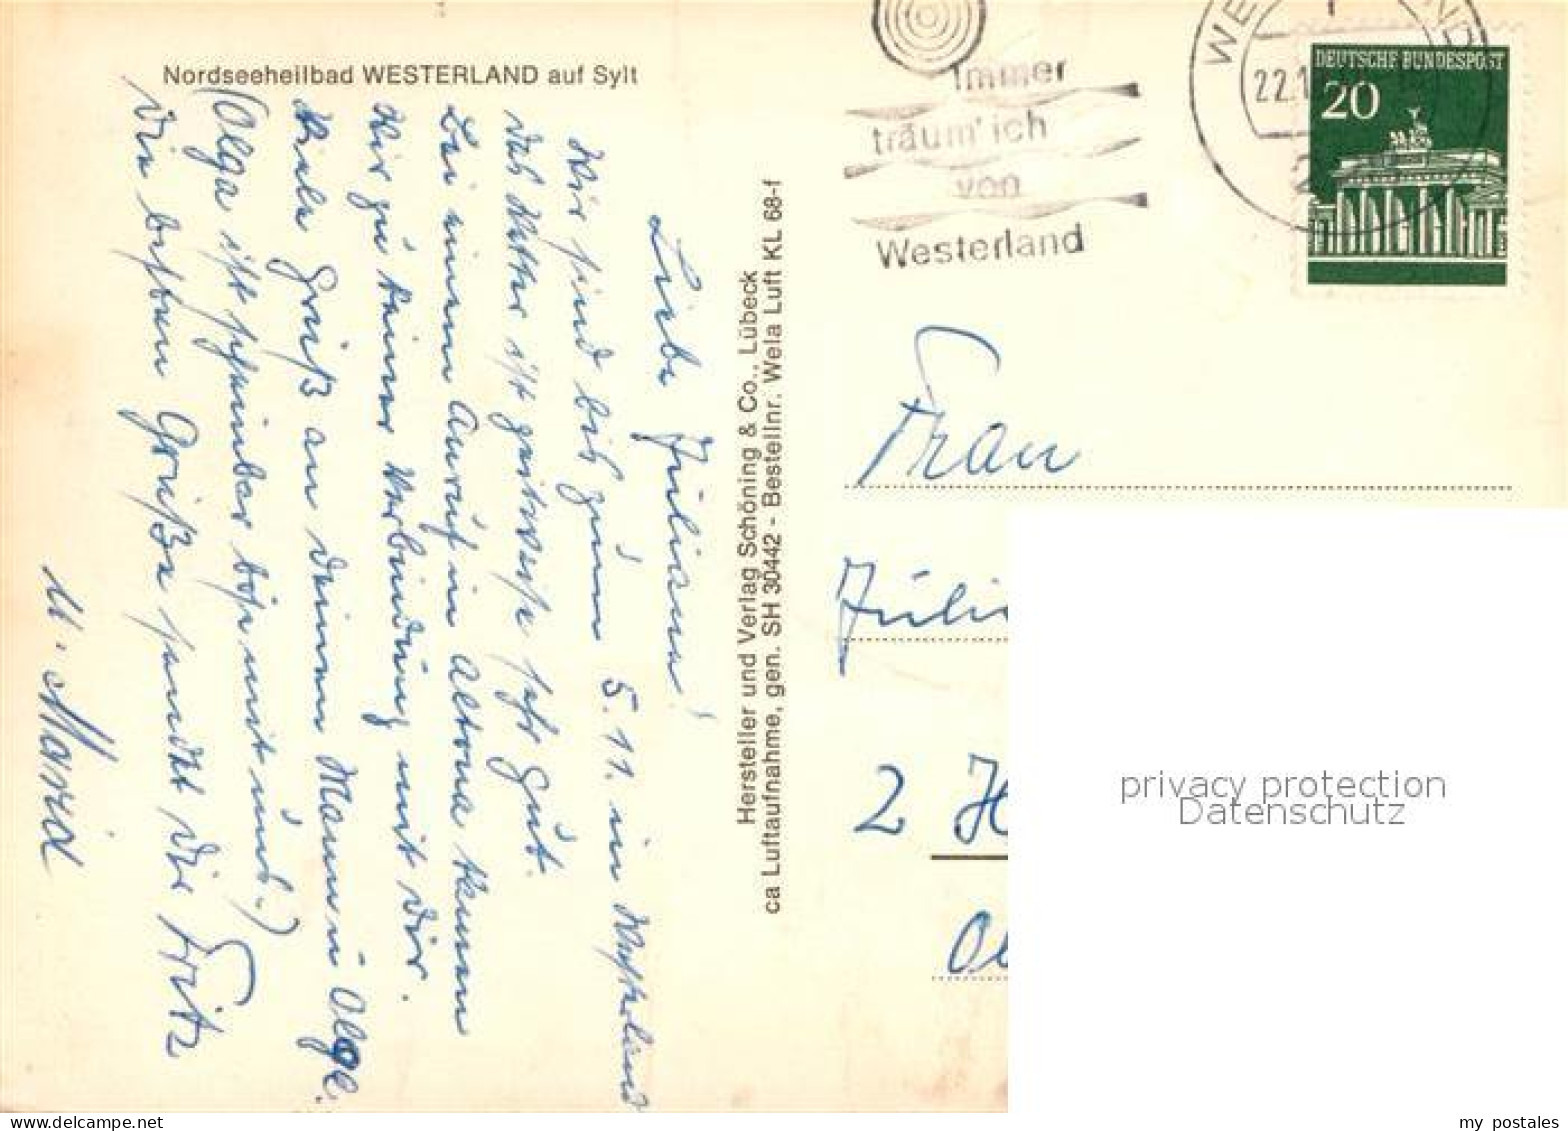 Nordseeheilbad WESTERLAND auf Sylt
Liebe Juliane!
Wir sind bis zum 5.11. in Westerland
das Wetter ist zeitweise sehr gut.
Bei einem Anruf in Altona kamen
wir zu keiner Verbindung mit Dir.
Viele Grüße an Deinen Mann u Olga.
(Olga ist scheinbar böse mit uns.)
Die besten Grüße sendet Dir Fritz
u. Maria
Hersteller und Verlag Schöning & Co., Lübeck
ca Luftaufnahme, gen. SH 30442 - Bestellnr. Wela Luft KL 68-f
Immer
träum' ich
von
Westerland
22.1
DEUTSCHE BUNDESPOST
20
Frau
2 H
privacy protection
Datenschutz
my postales